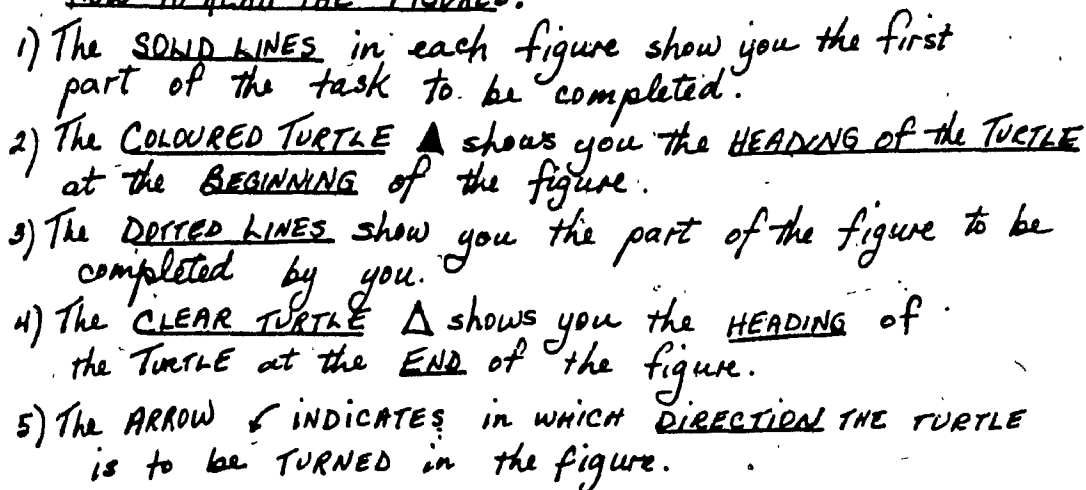 HOW TO READ THE FIGURES:
1) The SOLID LINES in each figure show you the first
part of the task to be completed.
2) The COLOURED TURTLE ▲ shows you the HEADING of the TURTLE
at the BEGINNING of the figure.
3) The DOTTED LINES show you the part of the figure to be
completed by you.
4) The CLEAR TURTLE △ shows you the HEADING of
the TURTLE at the END of the figure.
5) The ARROW ↙ INDICATES in WHICH DIRECTION THE TURTLE
is to be TURNED in the figure.